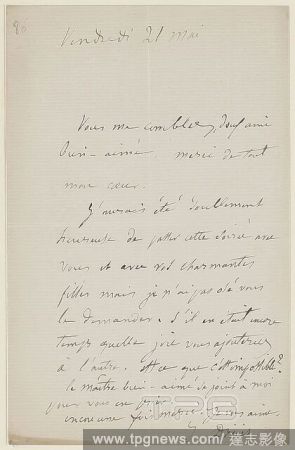 80
Vendredi 21 mai
Vous me comblez, doux ami
bien-aimé, merci de tout
mon cœur.
J'aurais été doublement
heureuse de passer cette soirée avec
vous et avec vos charmantes
filles mais je n'ai pas osé vous
le demander. S'il en était encore
temps quelle joie vous ajouteriez
à l'autre. Est-ce que c'est impossible?
le maître bien-aimé se joint à moi
pour vous en prier
encore une fois merci. Je vous aime
www.tpgnews.com/達志影像